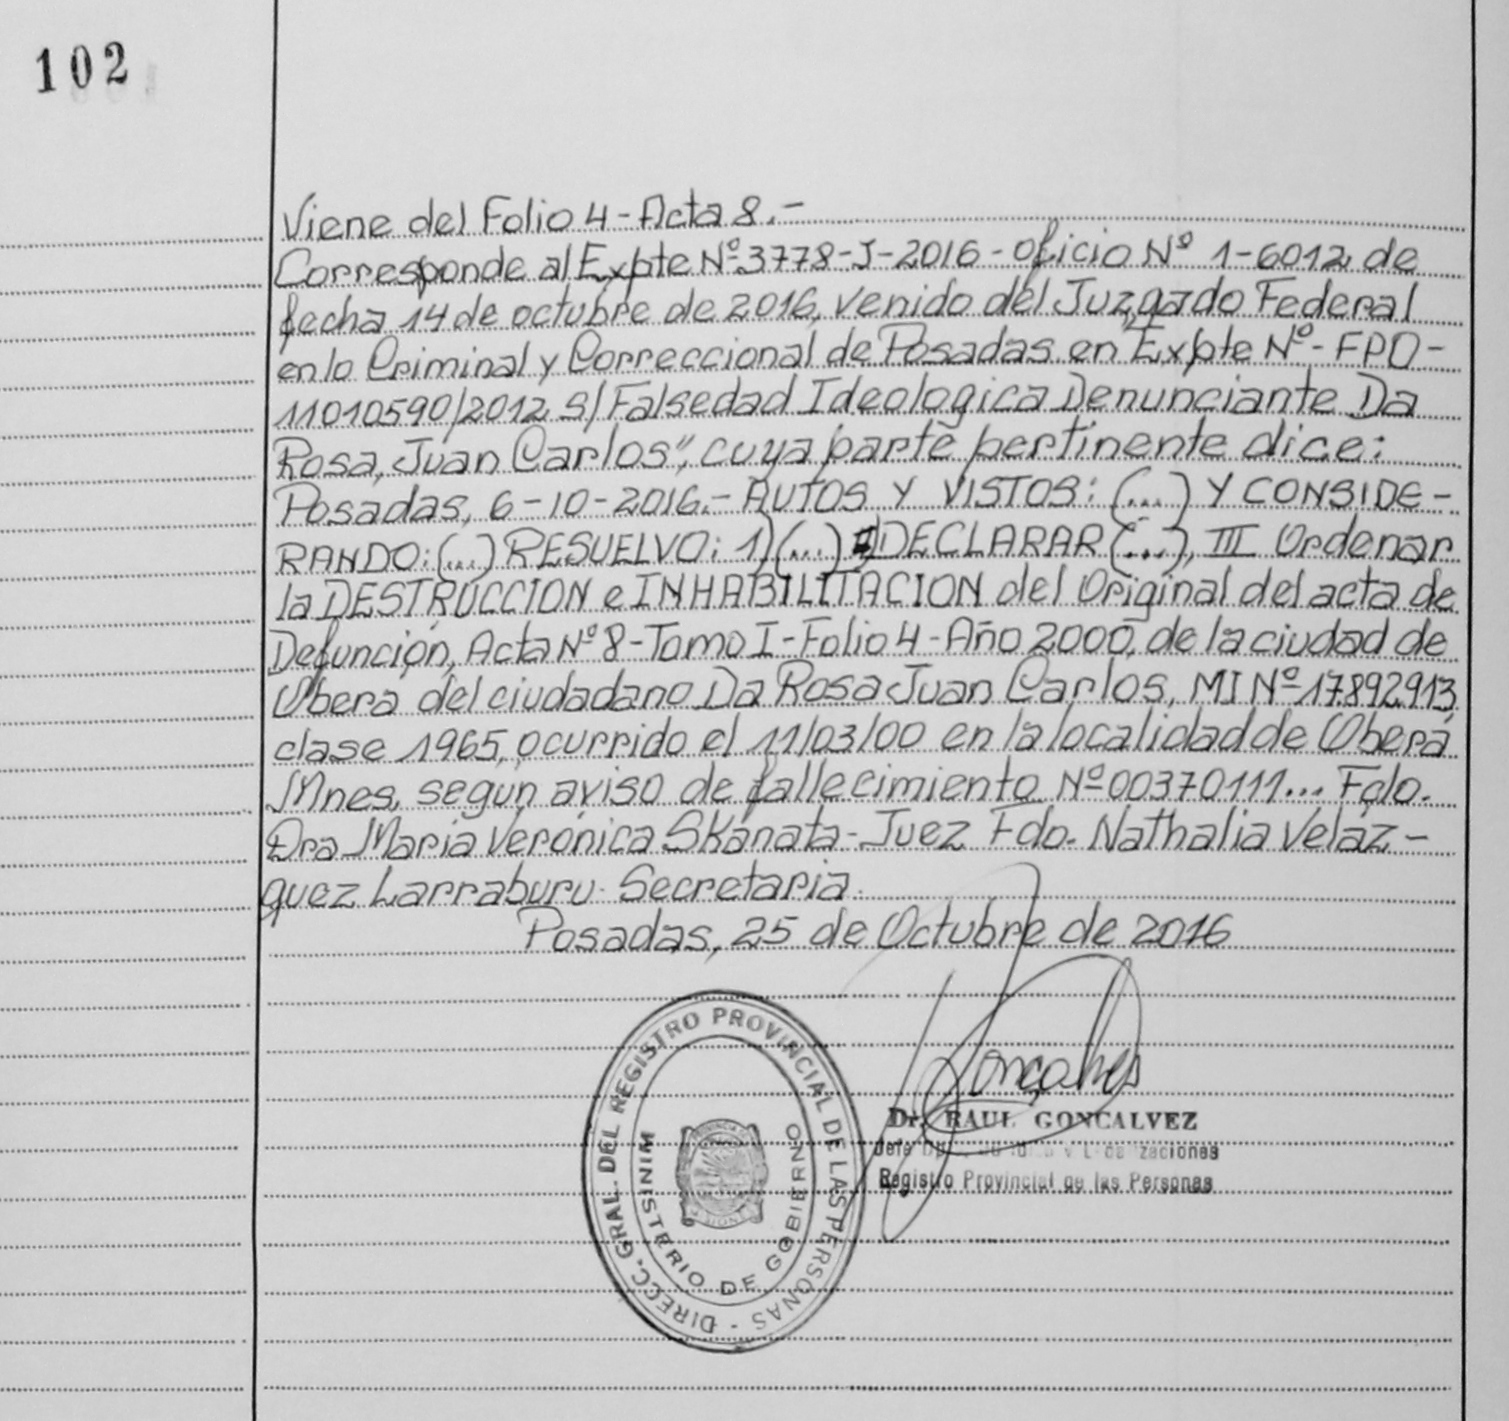 102
Viene del Folio 4 - Acta 8.-
Corresponde al Expte Nº 3778-J-2016 - oficio Nº 1-6012 de
fecha 14 de octubre de 2016, venido del Juzgado Federal
en lo Criminal y Correccional de Posadas en Expte Nº - FPO -
11010590/2012 s/ Falsedad Ideologica Denunciante Da
Rosa, Juan Carlos", cuya parte pertinente dice:
Posadas, 6-10-2016.- AUTOS Y VISTOS: (...) Y CONSIDE -
RANDO: (...) RESUELVO: 1) (...) II) DECLARAR (...), III Ordenar
la DESTRUCCION e INHABILITACION del Original del acta de
Defunción, Acta Nº 8 - Tomo I - Folio 4 - Año 2000, de la ciudad de
Obera del ciudadano Da Rosa Juan Carlos, MI Nº 17.892.913,
clase 1965, ocurrido el 11/03/00 en la localidad de Oberá
Mnes, según aviso de fallecimiento Nº 00370111... Fdo.
Dra Maria Verónica Skanata - Juez Fdo. Nathalia Velaz -
quez Larraburu - Secretaria.
Posadas, 25 de Octubre de 2016
DIRECC. GRAL. DEL REGISTRO PROVINCIAL DE LAS PERSONAS -
MINISTERIO DE GOBIERNO
Gonçalves
Dr. RAUL GONCALVEZ
Jefe
Registro Provincial de las Personas